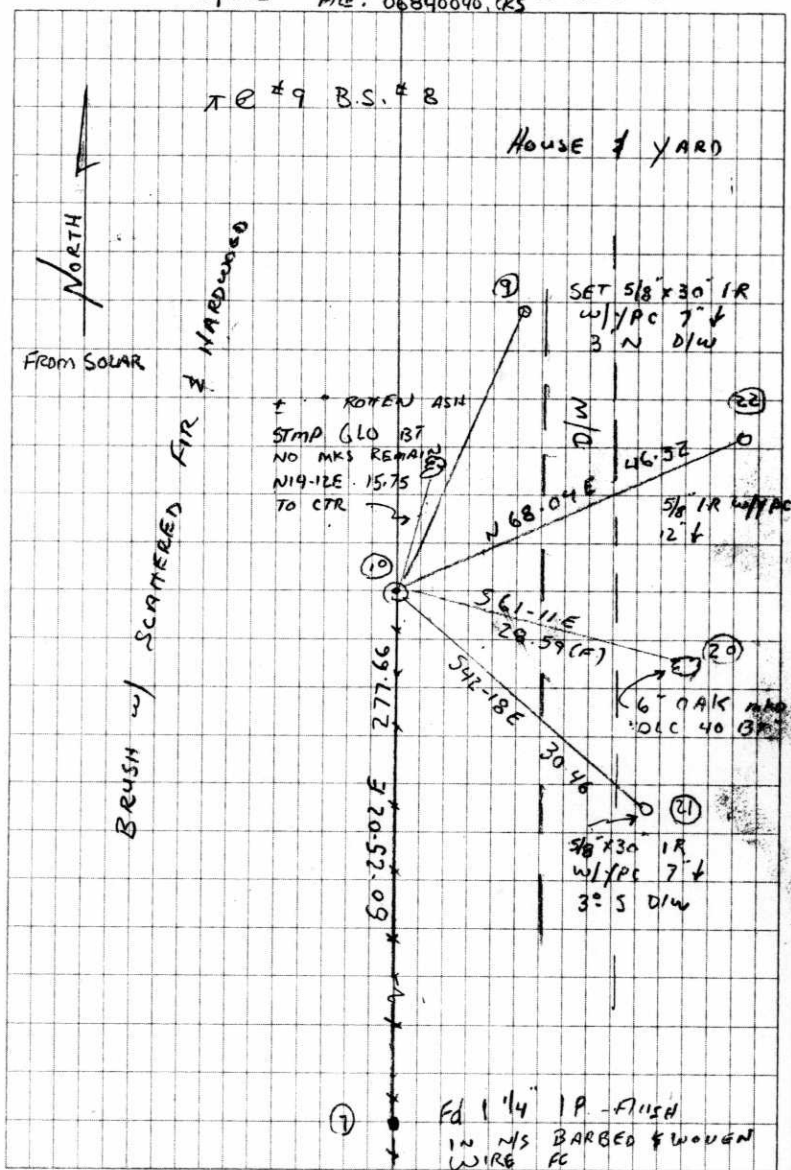 FILE: 06840040.CKS
π @ #9 B.S. #8
HOUSE & YARD
NORTH
FROM SOLAR
BRUSH w/ SCATTERED FIR & HARDWOOD
9
SET 5/8" x 30" IR
w/YPC 7" ↓
3' N D/W
± " ROTTEN ASH
STMP GLO BT
NO MKS REMAIN
N19-12E 15.75
TO CTR
D/W
22
46.52
N 68-04 E
5/8" IR w/YPC
12" ↓
10
S 61-11 E
28.59 (F)
20
6" OAK
DLC 40 BT
S42-18E
30.46
21
5/8" x 30 IR
w/YPC 7" ↓
3.0 S D/W
277.66
N 60-25-02 E
7
Fd 1 1/4" IP - FLUSH
IN N/S BARBED & WOVEN
WIRE FC